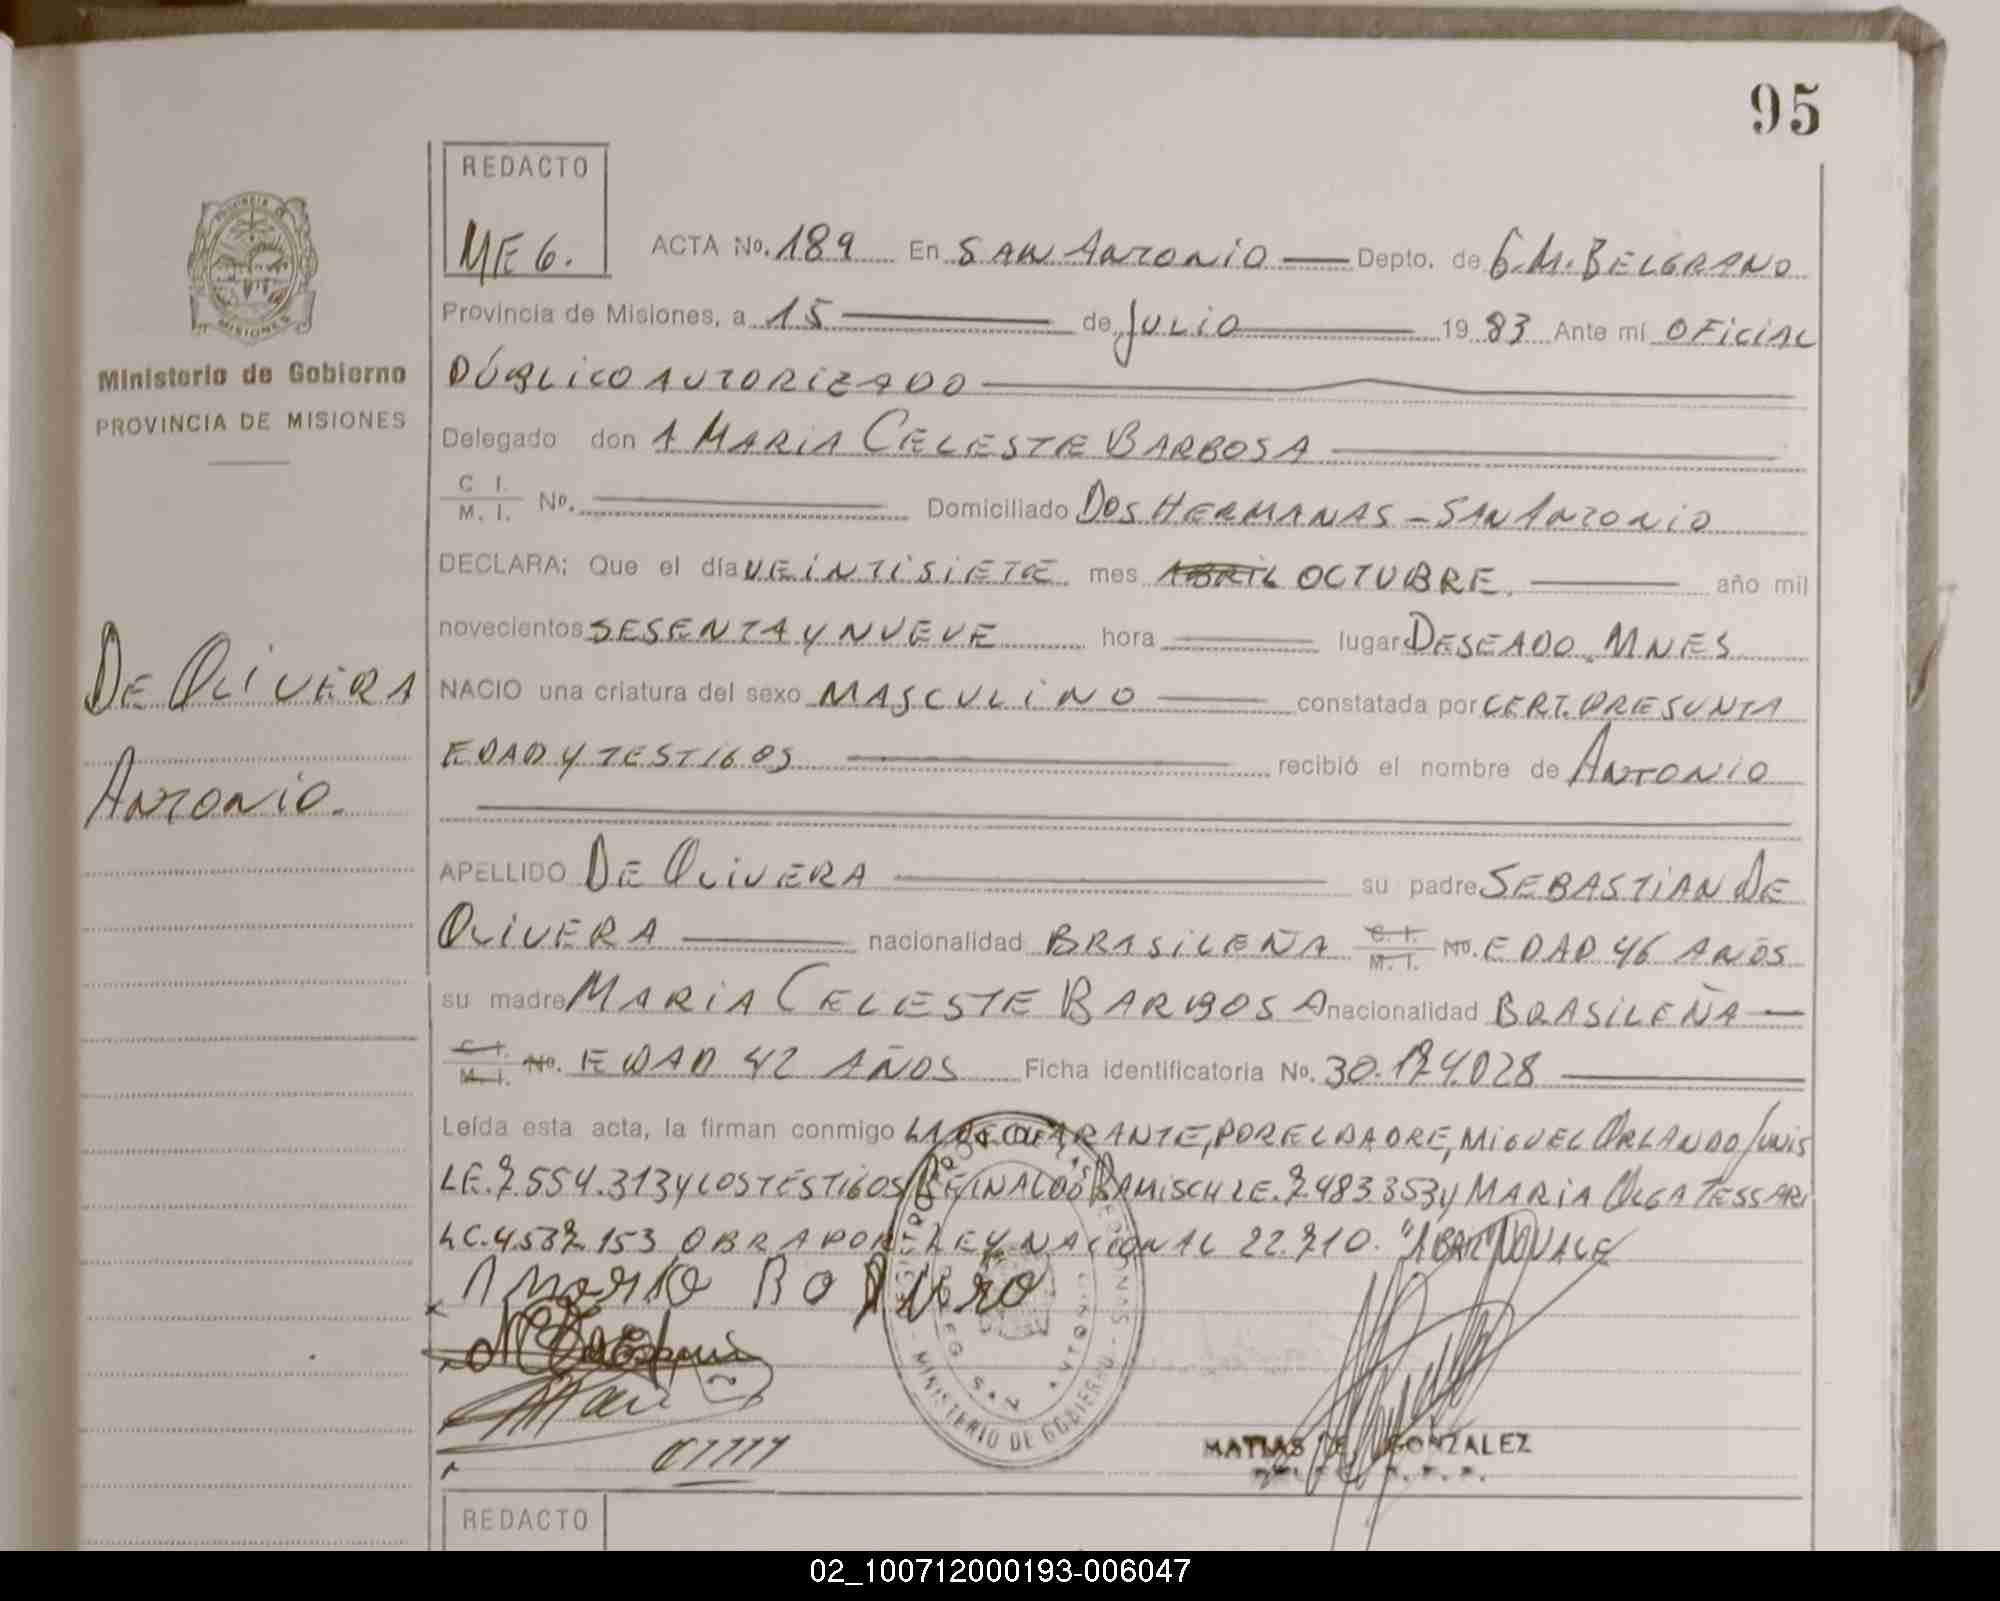 95
REDACTO
MEG.
ACTA No. 189 En SAN ANTONIO Depto. de G.M. BELGRANO
Provincia de Misiones, a 15 de JULIO 1983 Ante mí OFICIAL
PÚBLICO AUTORIZADO
Delegado don A MARIA CELESTE BARBOSA
C. I. M. I. No. Domiciliado DOS HERMANAS - SAN ANTONIO
DECLARA: Que el día VEINTISIETE mes ABRIL OCTUBRE. año mil
novecientos SESENTA Y NUEVE hora lugar DESEADO MNES
NACIO una criatura del sexo MASCULINO constatada por CERT. PRESUNTA
EDAD Y TESTIGOS recibió el nombre de ANTONIO
APELLIDO DE OLIVERA su padre SEBASTIAN DE
OLIVERA nacionalidad BRASILEÑA C. I. M. I. No. EDAD 46 AÑOS
su madre MARIA CELESTE BARBOSA nacionalidad BRASILEÑA
C. I. M. I. No. EDAD 42 AÑOS Ficha identificatoria No. 30.174.028
Leída esta acta, la firman conmigo LA DECLARANTE, POR EL PADRE, MIGUEL ORLANDO JUNIS
LE. 7.554.313 Y LOS TESTIGOS REINALDO RAMISCH LE. 7.483.353 Y MARIA OLGA TESSARI
LC. 4.537.153 OBRA POR LEY NACIONAL 22.710. "ABRIL" NO VALE
MINISTERIO DE GOBIERNO
MATIAS DE GONZALEZ
Ministerio de Gobierno
PROVINCIA DE MISIONES
DE OLIVERA
ANTONIO.
REDACTO
02_100712000193-006047